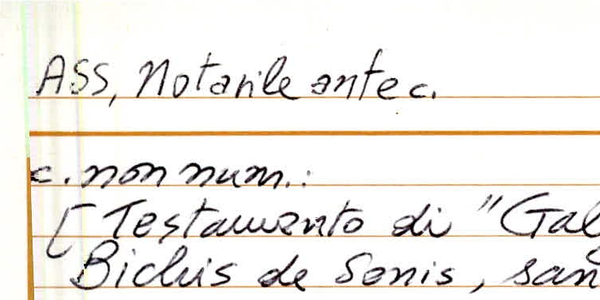 ASS, Notarile ante c.
c. non num.:
[Testamento di "Gal
Bichis de Senis, san